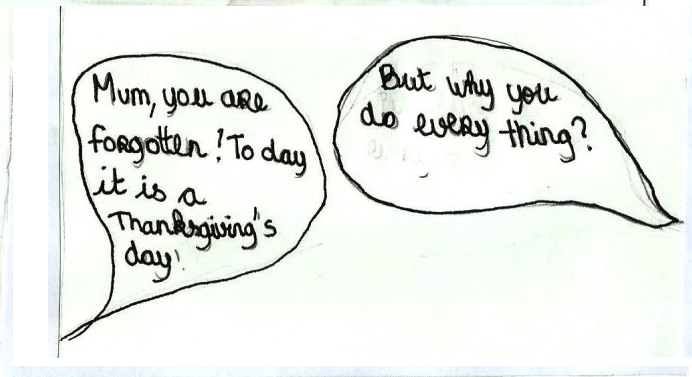 Mum, you are
forgotten! To day
it is a
Thanksgiving"s
day!
But why you
do every thing?